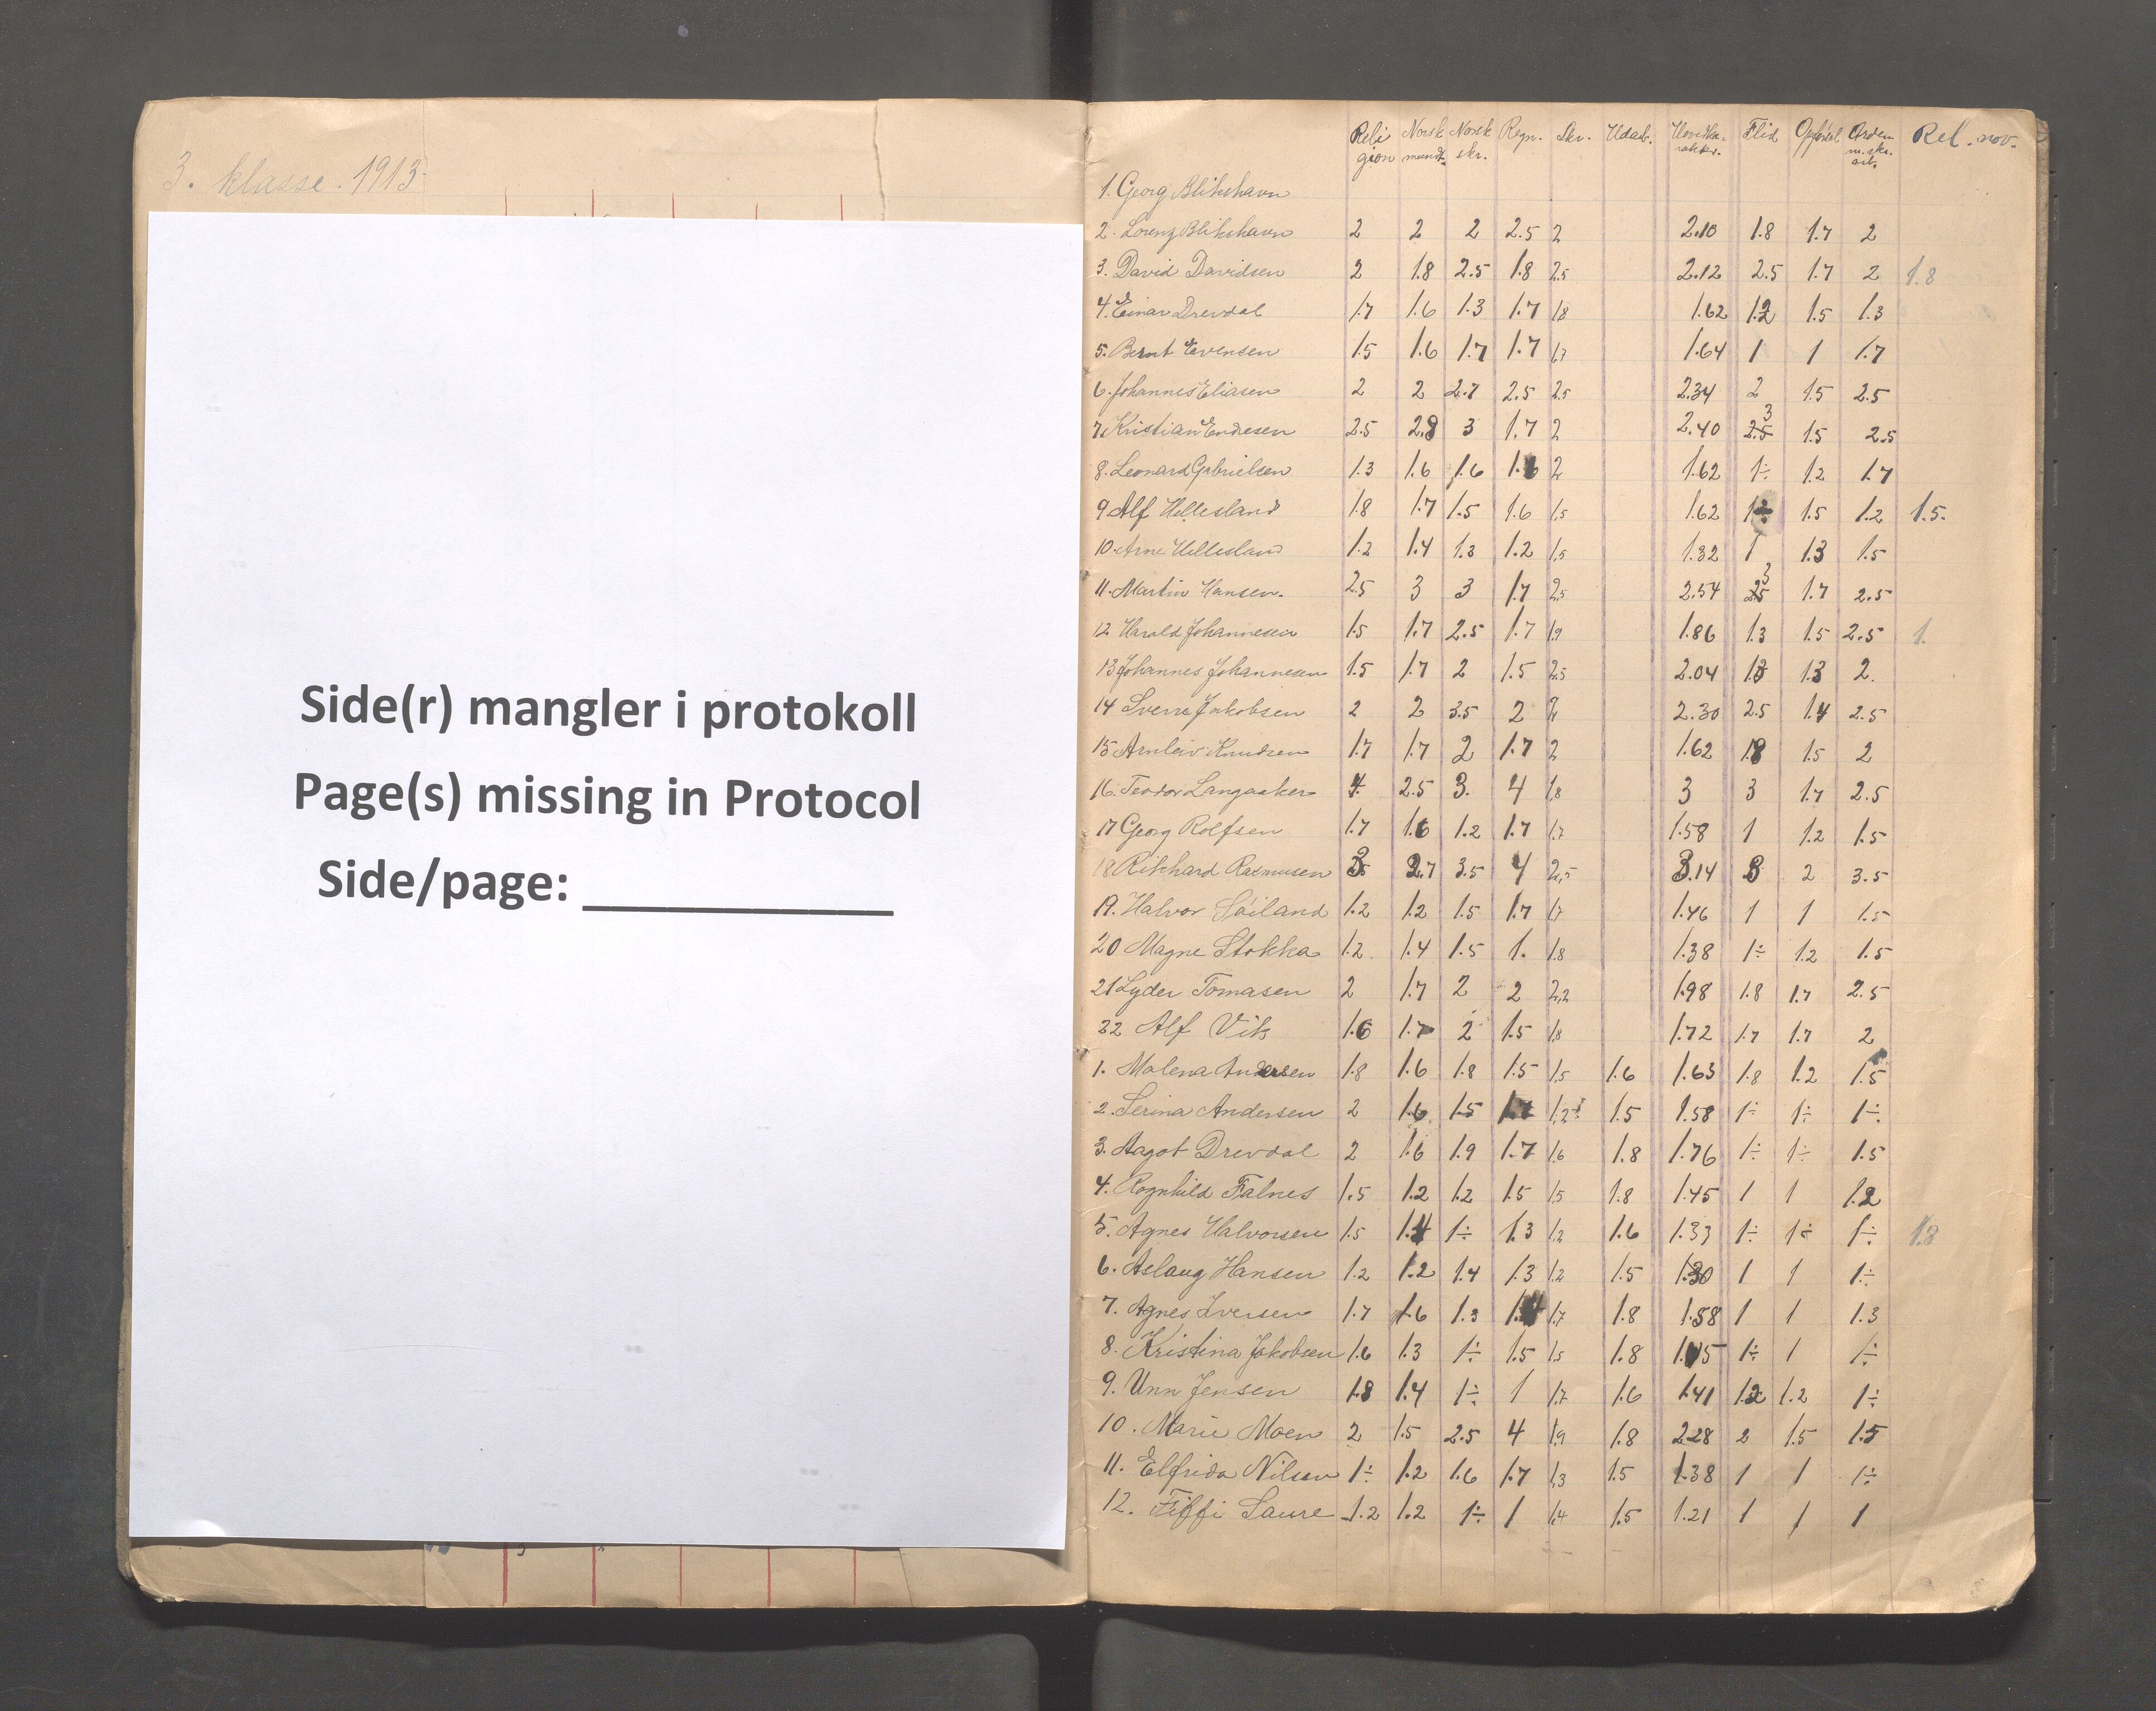 3. klasse. 1913.
Side(r) mangler i protokoll
Page(s) missing in Protocol
Side/page: ___________
Religion Norsk mundt. Norsk skr. Regn. Skr. Udarb. Hovedkarakter. Flid Opførsel Orden m. skr. arb. Rel. nov.
1. Georg Blikshavn
2. Lorenz Blikshavn 2 2 2 2.5 2 2.10 1.8 1.7 2
3. David Davidsen 2 1.8 2.5 1.8 2,5 2.12 2.5 1.7 2 1.8
4. Einar Drevdal 1.7 1.6 1.3 1.7 1,8 1.62 1.2 1.5 1.3
5. Bernt Evensen 1.5 1.6 1.7 1.7 1,7 1.64 1 1 1.7
6. Johannes Eliasen 2 2 2.7 2.5 2.5 2.34 2 1.5 2.5
7. Kristian Endresen 2.5 2.8 3 1.7 2 2.40 2.5 3 1.5 2.5
8. Leonard Gabrielsen 1.3 1.6 1.6 2 1.62 1÷ 1.2 1.7
9 Alf Hellesland 1.8 1.7 1.5 1.6 1,5 1.62 1÷ 1.5 1.2 1.5.
10. Arne Hellesland 1.2 1.4 1.3 1.2 1,5 1.32 1 1.3 1.5
11. Martin Hansen. 2.5 3 3 1.7 2,5 2.54 2.5 3 1.7 2.5
12 Harald Johannesen 1.5 1.7 2.5 1.7 1.9 1.86 1.3 1.5 2.5 1.
13 Johannes Johannesen 1.5 1.7 2 1.5 2,5 2.04 1.3 2.
14 Sverre Jakobsen 2 2 3.5 2 2 2.30 2.5 1.4 2.5
15 Arnleiv Knudsen 1.7 1.7 2 1.7 2 1.62 1.8 1.5 2
16. Teodor Langaaker 4 2.5 3. 4 1,8 3 3 1.7 2.5
17 Georg Rolfsen 1.7 1.6 1.2 1.7 1.7 1.58 1 1.2 1.5
18 Rikhard Rasmusen 3 2.7 3.5 4 2,5 3.14 3 2 3.5
19. Halvor Söiland 1.2 1.2 1.5 1.7 1.7 1.46 1 1 1.5
20 Magne Stokka 1.2 1.4 1.5 1. 1.8 1.38 1÷ 1.2 1.5
21 Lyder Tomasen 2 1.7 2 2 2,2 1.98 1.8 1.7 2.5
22 Alf Vik 1.6 1.7 2 1.5 1,8 1.72 1.7 1.7 2
1. Malena Andersen 1.8 1.6 1.8 1.5 1,5 1.6 1.63 1.8 1.2 1.5
2. Serina Andersen 2 1.6 1.5 1,2÷ 1.5 1.58 1÷ 1÷ 1÷
3. Aagot Drevdal 2 1.6 1.9 1.7 1,6 1.8 1.76 1÷ 1÷ 1.5
4. Ragnhild Falnes 1.5 1.2 1.2 1.5 1,5 1.8 1.45 1 1 1.2
5. Agnes Halvorsen 1.5 1.4 1÷ 1.3 1,2 1.6 1.33 1÷ 1÷ 1÷ 1.3
6. Aslaug Hansen 1.2 1.2 1.4 1.3 1.2 1.5 1.30 1 1 1÷
7. Agnes Iversen 1.7 1.6 1.3 1.7 1.8 1.58 1 1 1.3
8. Kristina Jakobsen 1.6 1.3 1÷ 1.5 1.5 1.8 1.45 1÷ 1 1÷
9. Unn Jensen 1.8 1.4 1÷ 1 1.7 1.6 1.41 1.2 1.2 1÷
10. Marie Moen 2 1.5 2.5 4 1,9 1.8 2.28 2 1.5 1.5
11. Elfrida Nilsen 1÷ 1.2 1.6 1.7 1,3 1.5 1.38 1 1 1÷
12. Fiffi Saure 1.2 1.2 1÷ 1 1.4 1.5 1.21 1 1 1